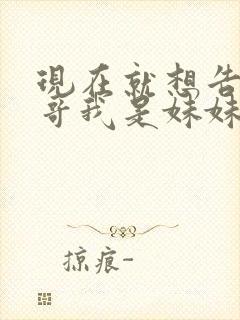 現在就想告
哥我是妹妹
掠痕-